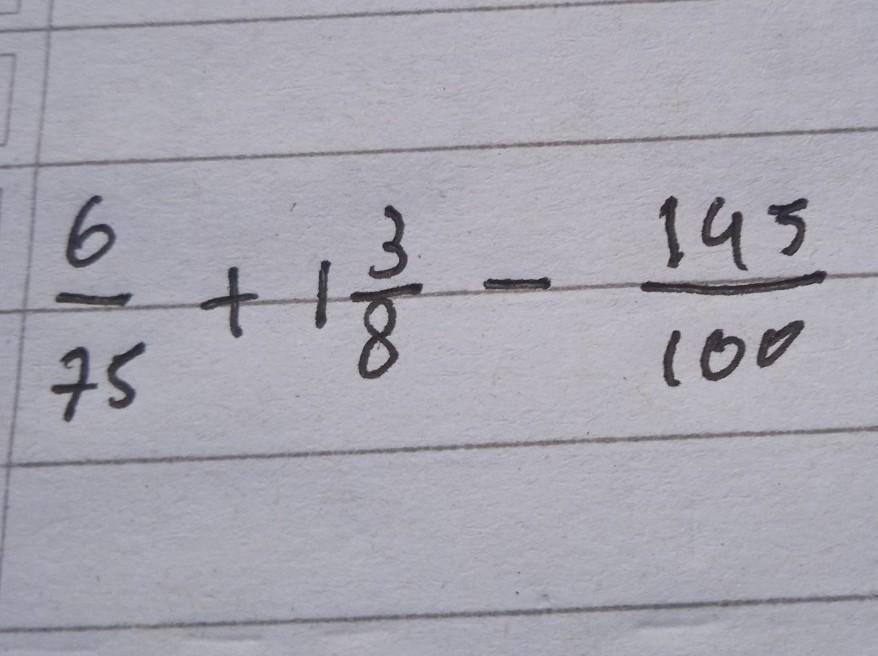 6/75 + 1 3/8 - 145/100